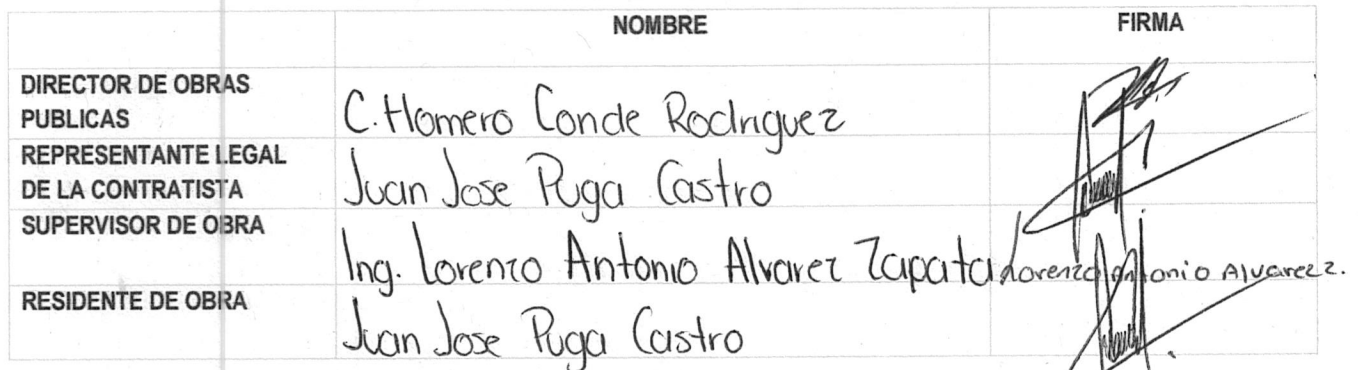 NOMBRE FIRMA
DIRECTOR DE OBRAS
PUBLICAS C. Homero Conde Rodriguez
REPRESENTANTE LEGAL
DE LA CONTRATISTA Juan Jose Puga Castro
SUPERVISOR DE OBRA
Ing. Lorenzo Antonio Alvarez Zapata Lorenzo Antonio Alvarez z.
RESIDENTE DE OBRA
Juan Jose Puga Castro